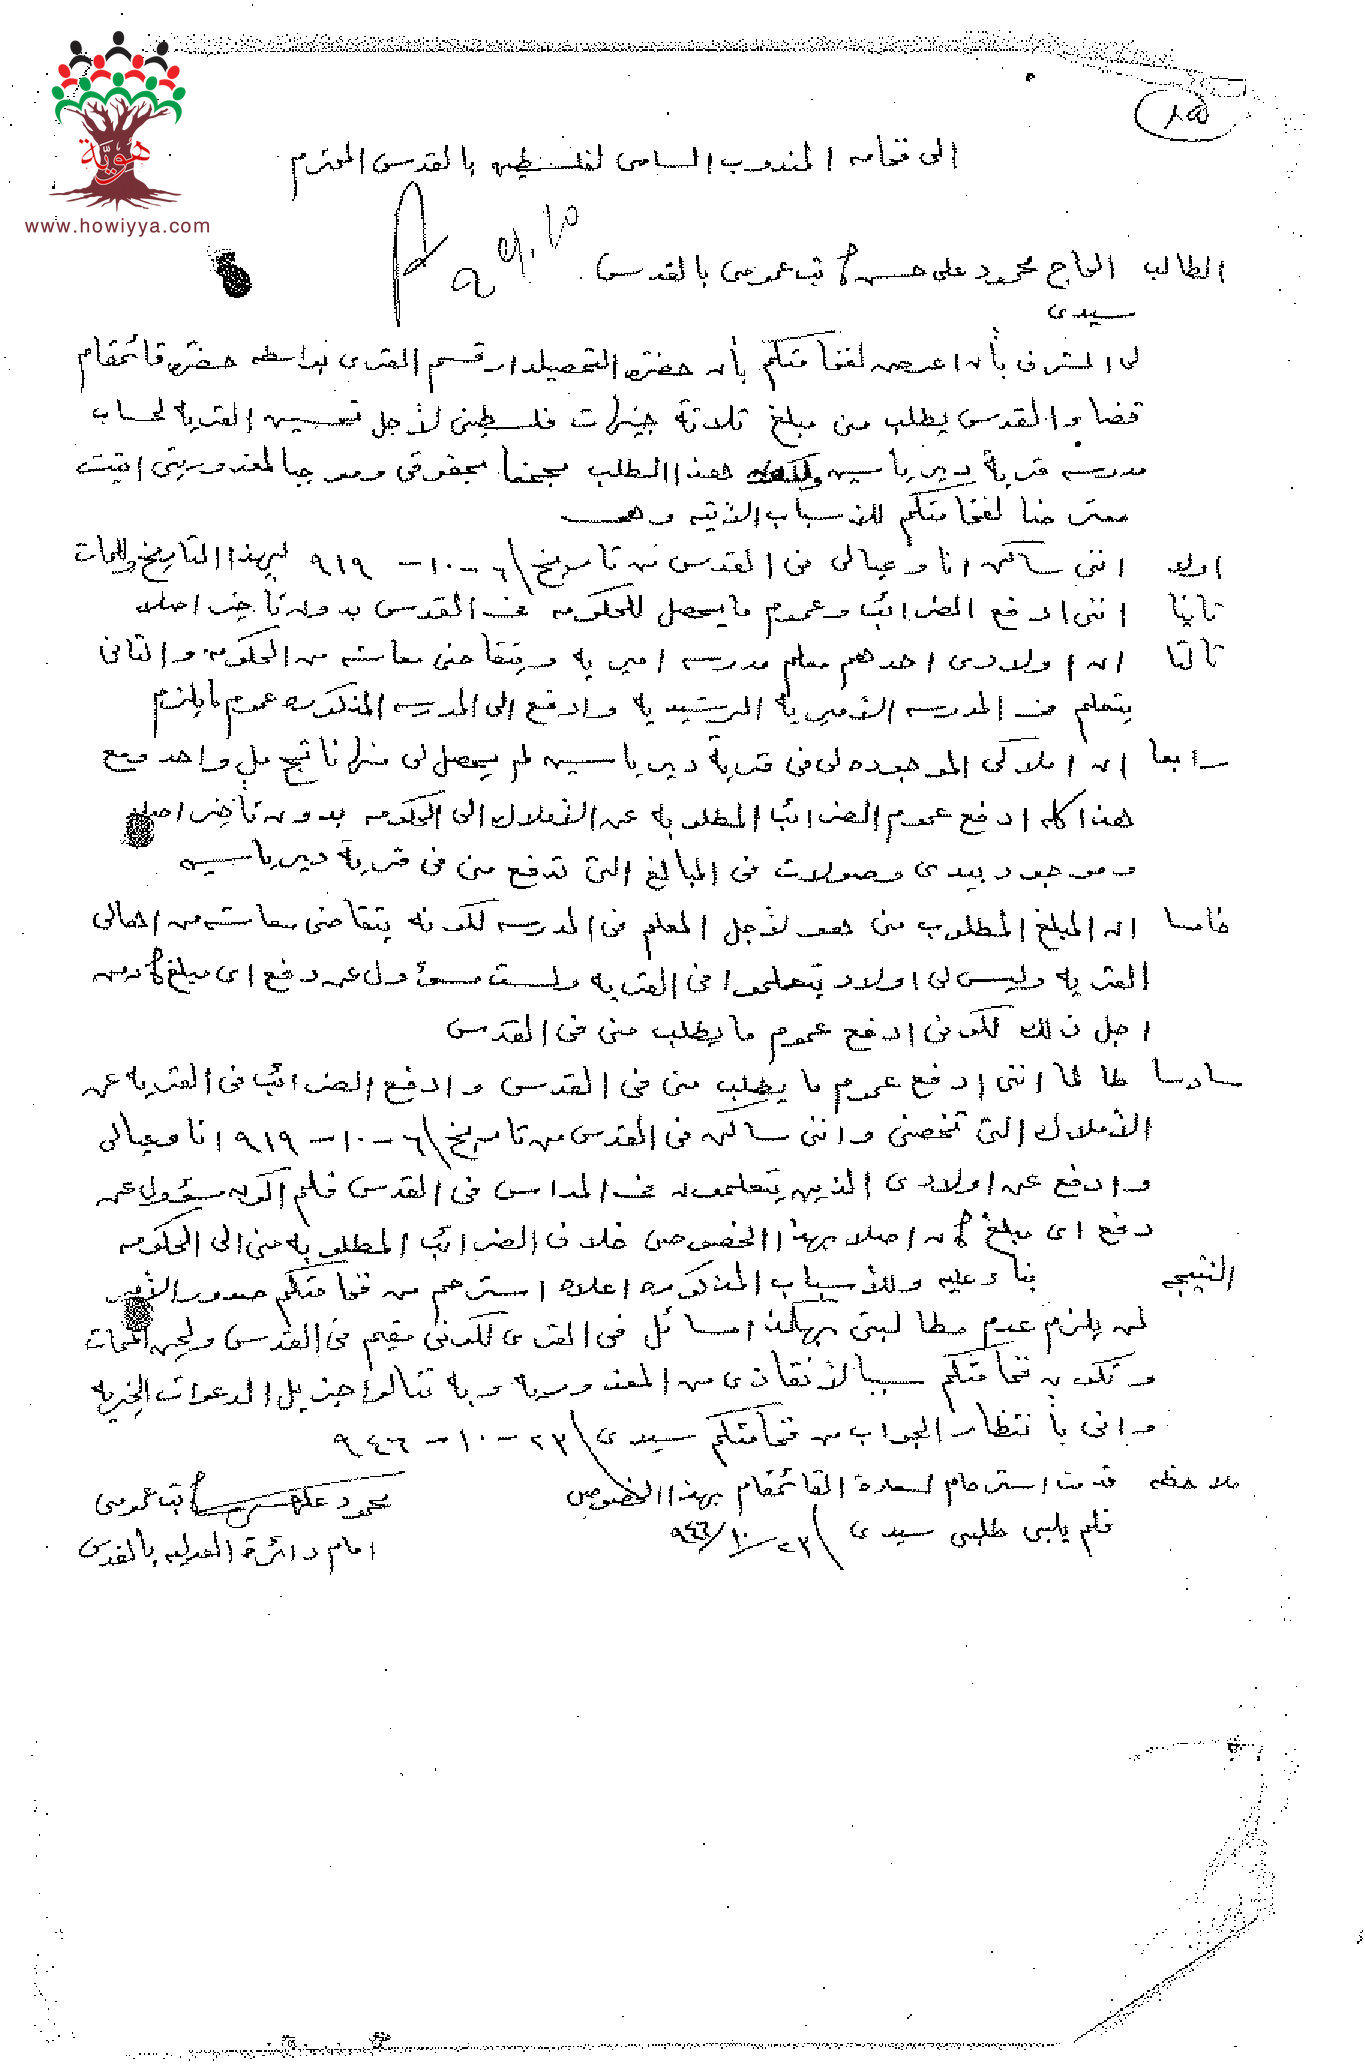 هويّة
www.howiyya.com
٨٥
الى فخامه المندوب السامى لفلسطين بالقدس المحترم
الطالب الحاج محمود على حسن كاتب عمومى بالقدس
سيدى
لى الشرف بأن اعرض لفخامتكم بأن حضرة التحصيلدار قسم القرى بواسطه حضرة قائمقام
قضاء القدس يطلب منى مبلغ ثلاثة جنيهات فلسطينى لأجل تحسين القريه لحساب
مدرسه قرية دير ياسين هذا الطلب مجحفا بحقوقى وموجبا لمغدوريتى اتيت
معترضا لفخامتكم للاسباب الآتيه وهى
اولا اننى ساكن انا وعيالى فى القدس من تاريخ ٦-١٠-٩١٩ لهذا التاريخ وللممات
ثانيا اننى ادفع الضرائب وعموم ما يحصل للحكومه فى القدس بدون تأخير اصلا
ثالثا ان اولادى احدهم معلم مدرسه اميريه ويتقاضى معاشه من الحكومه والثانى
يتعلم فى المدرسه الأميريه الرشيديه وادفع الى المدرسه المذكوره عموم ما يلزم
رابعا ان املاكى الموجوده لى فى قرية دير ياسين لم يحصل لى منها ناتج مل واحد ومع
هذا كله ادفع عموم الضرائب المطلوبه عن الأملاك الى الحكومه بدون تأخير اصلا
وموجود بيدى وصولات فى المبالغ التى تدفع منى فى قرية دير ياسين
خامسا ان المبلغ المطلوب منى هو لأجل المعلم فى المدرسه لكونه يتقاضى معاشه من اهالى
القريه وليس لى اولاد يتعلموا فى القريه ولست مسؤول عن دفع اى مبلغ كان من
اجل ذلك لكونى ادفع عموم ما يطلب منى فى القدس
سادسا طالما اننى ادفع عموم ما يطلب منى فى القدس وادفع الضرائب فى القريه عن
الأملاك التى تخصنى واننى ساكن فى القدس من تاريخ ٦-١٠-٩١٩ انا وعيالى
وادفع عن اولادى الذين يتعلمون فى المدارس فى القدس فلم اكون مسؤول عن
دفع اى مبلغ كان اصلا بهذا الخصوص خلاف الضرائب المطلوبه منى الى الحكومه
النتيجه بناء عليه وللأسباب المذكوره اعلاه استرحم من فخامتكم صدور الأمر
لمن يلزم عدم مطالبتى بهكذا مسائل فى القرى لكونى مقيم فى القدس ولحين الممات
وتكون فخامتكم سببا لأنقاذى من المغدوريه وبه تنالوا جزيل الدعوات الخيريه
وانى بأنتظار الجواب من فخامتكم سيدى ٢٣-١٠-٩٤٦
ملاحظه قدمت استرحام لسعادة القائمقام بهذا الخصوص
فلم يلبى طلبى سيدى ٢٣/١٠/٩٤٦
محمود على حسن كاتب عمومى
امام دائرة العدليه بالقدس